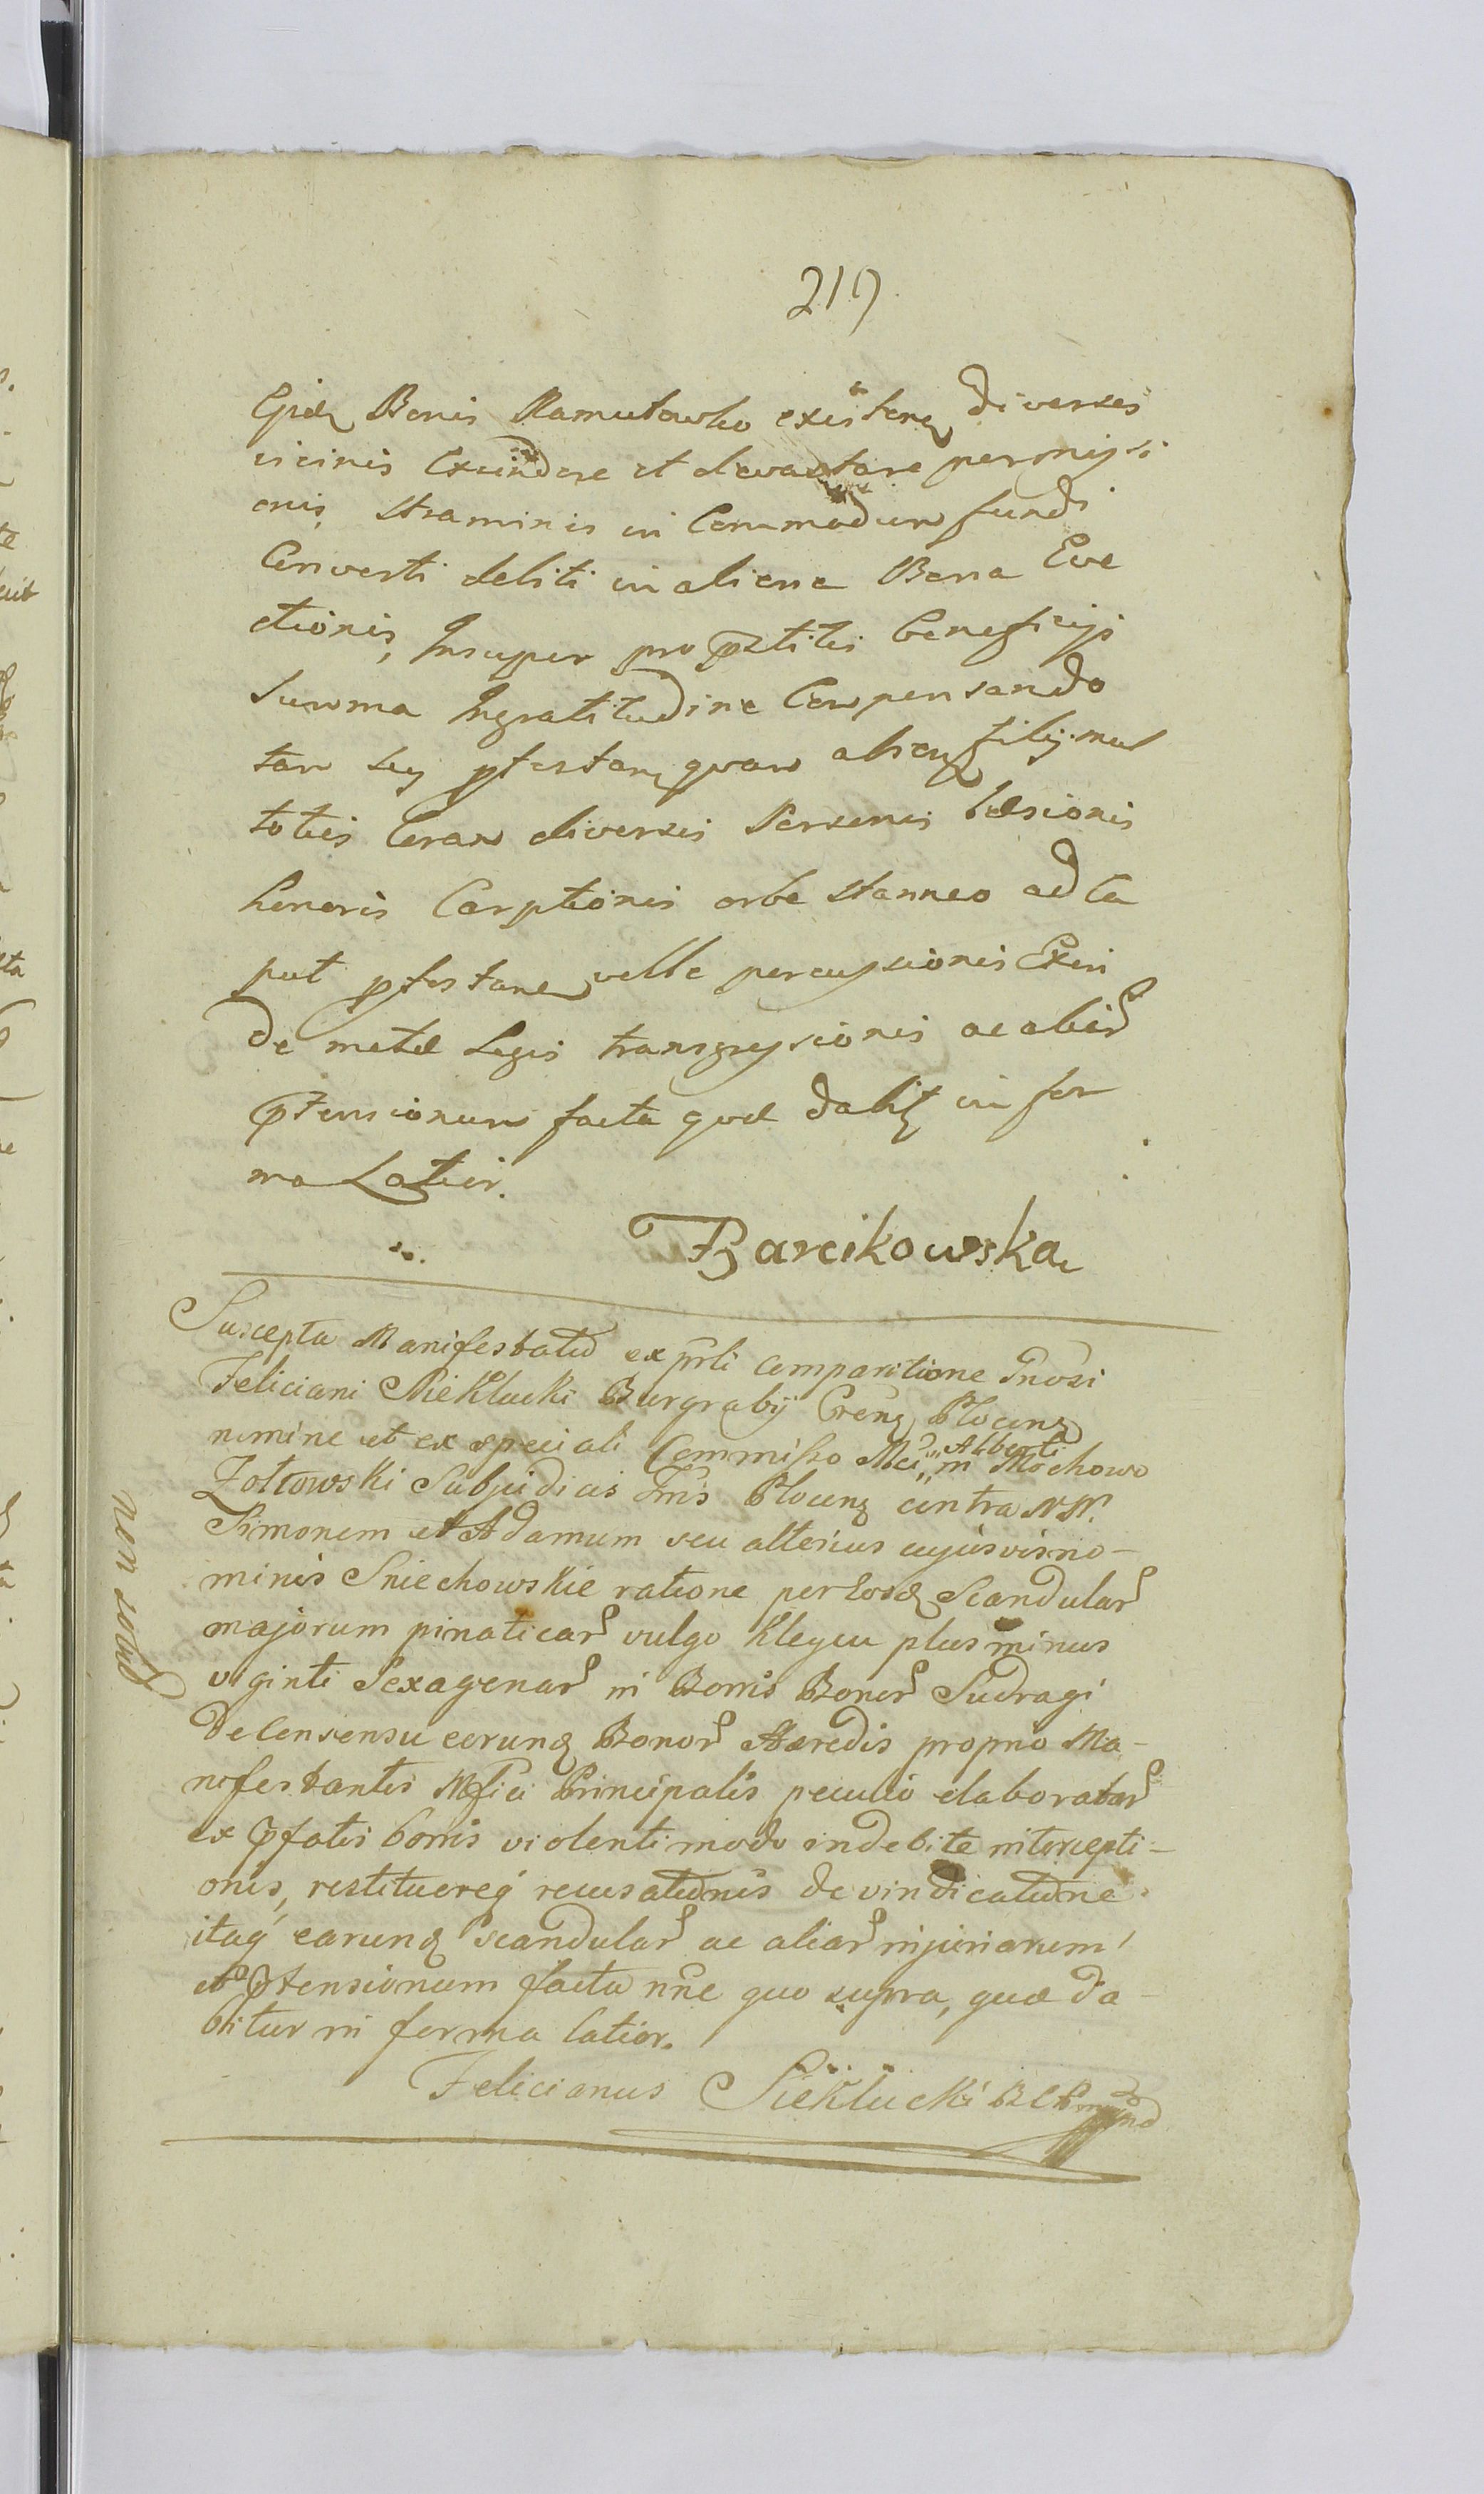 219.
Ejsdem Bonis Ramutowko existen diverses
vicinis Excindere et devastare permissi
onis, Straminis in Commodum fundi
Converti debiti in aliena Bona Eve
ctionis, Insuper pro pstitis beneficijs
Summa Ingratitudine Compensando
tam seq pfestan quam absen filij mul
toties Coram diversis Personis læsionis
honoris Carptionis orbe stanneo ad Ca
put pfestane velle percussionis Exin
de metæ Legis transgressionis ac aliar
Ptensionum facta quæ dabit in for
ma Latior.
Barcikowska
Suscepta Manifestatio ex prli comparitione Gnosi
Feliciani Sieklucki Burgrabij Cren Plocen
nomine et ex speciali Commisso Mci Alberti in Mochowo
Zołtowski Subjudicis Tris Plocen contra NN.
Simonem et Adamum seu alterius cujusvis no-
minis Sniechowskie ratione per eosd Scandular
majorum pinaticar vulgo Klepcu plus minus
viginti Sexagenar in Bonis Bonor Sudragi
de Consensu eorund Bonor Hæredis proprio Ma-
nifestantis Mfici Principalis peculio elaboratar
ex Pfatis bonis violenti modo indebite intercepti-
onis, restituereq recusationis de vindicatione
itaq earund scandular ac aliar injuriarum
et Ptensionum facta nne quo supra, quæ da-
bitur in forma latior.
Felicianus Sieklucki BCP mpp
non solut